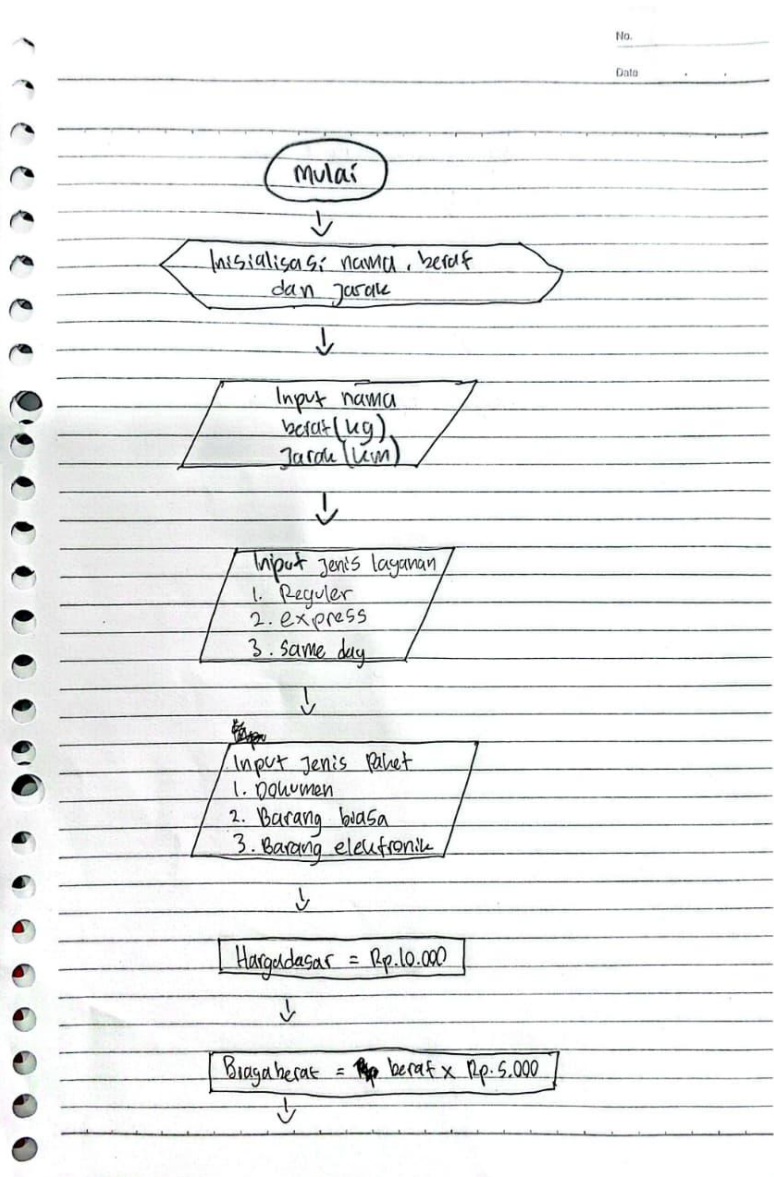 No.
Date
Mulai
Inisialisasi nama, berat
dan Jarak
Input nama
berat (kg)
Jarak (km)
Input Jenis layanan
1. Reguler
2. express
3. Same day
Input Jenis Paket
1. Dokumen
2. Barang biasa
3. Barang elektronik
Hargadasar = Rp.10.000
Biayaberat = berat x Rp.5.000